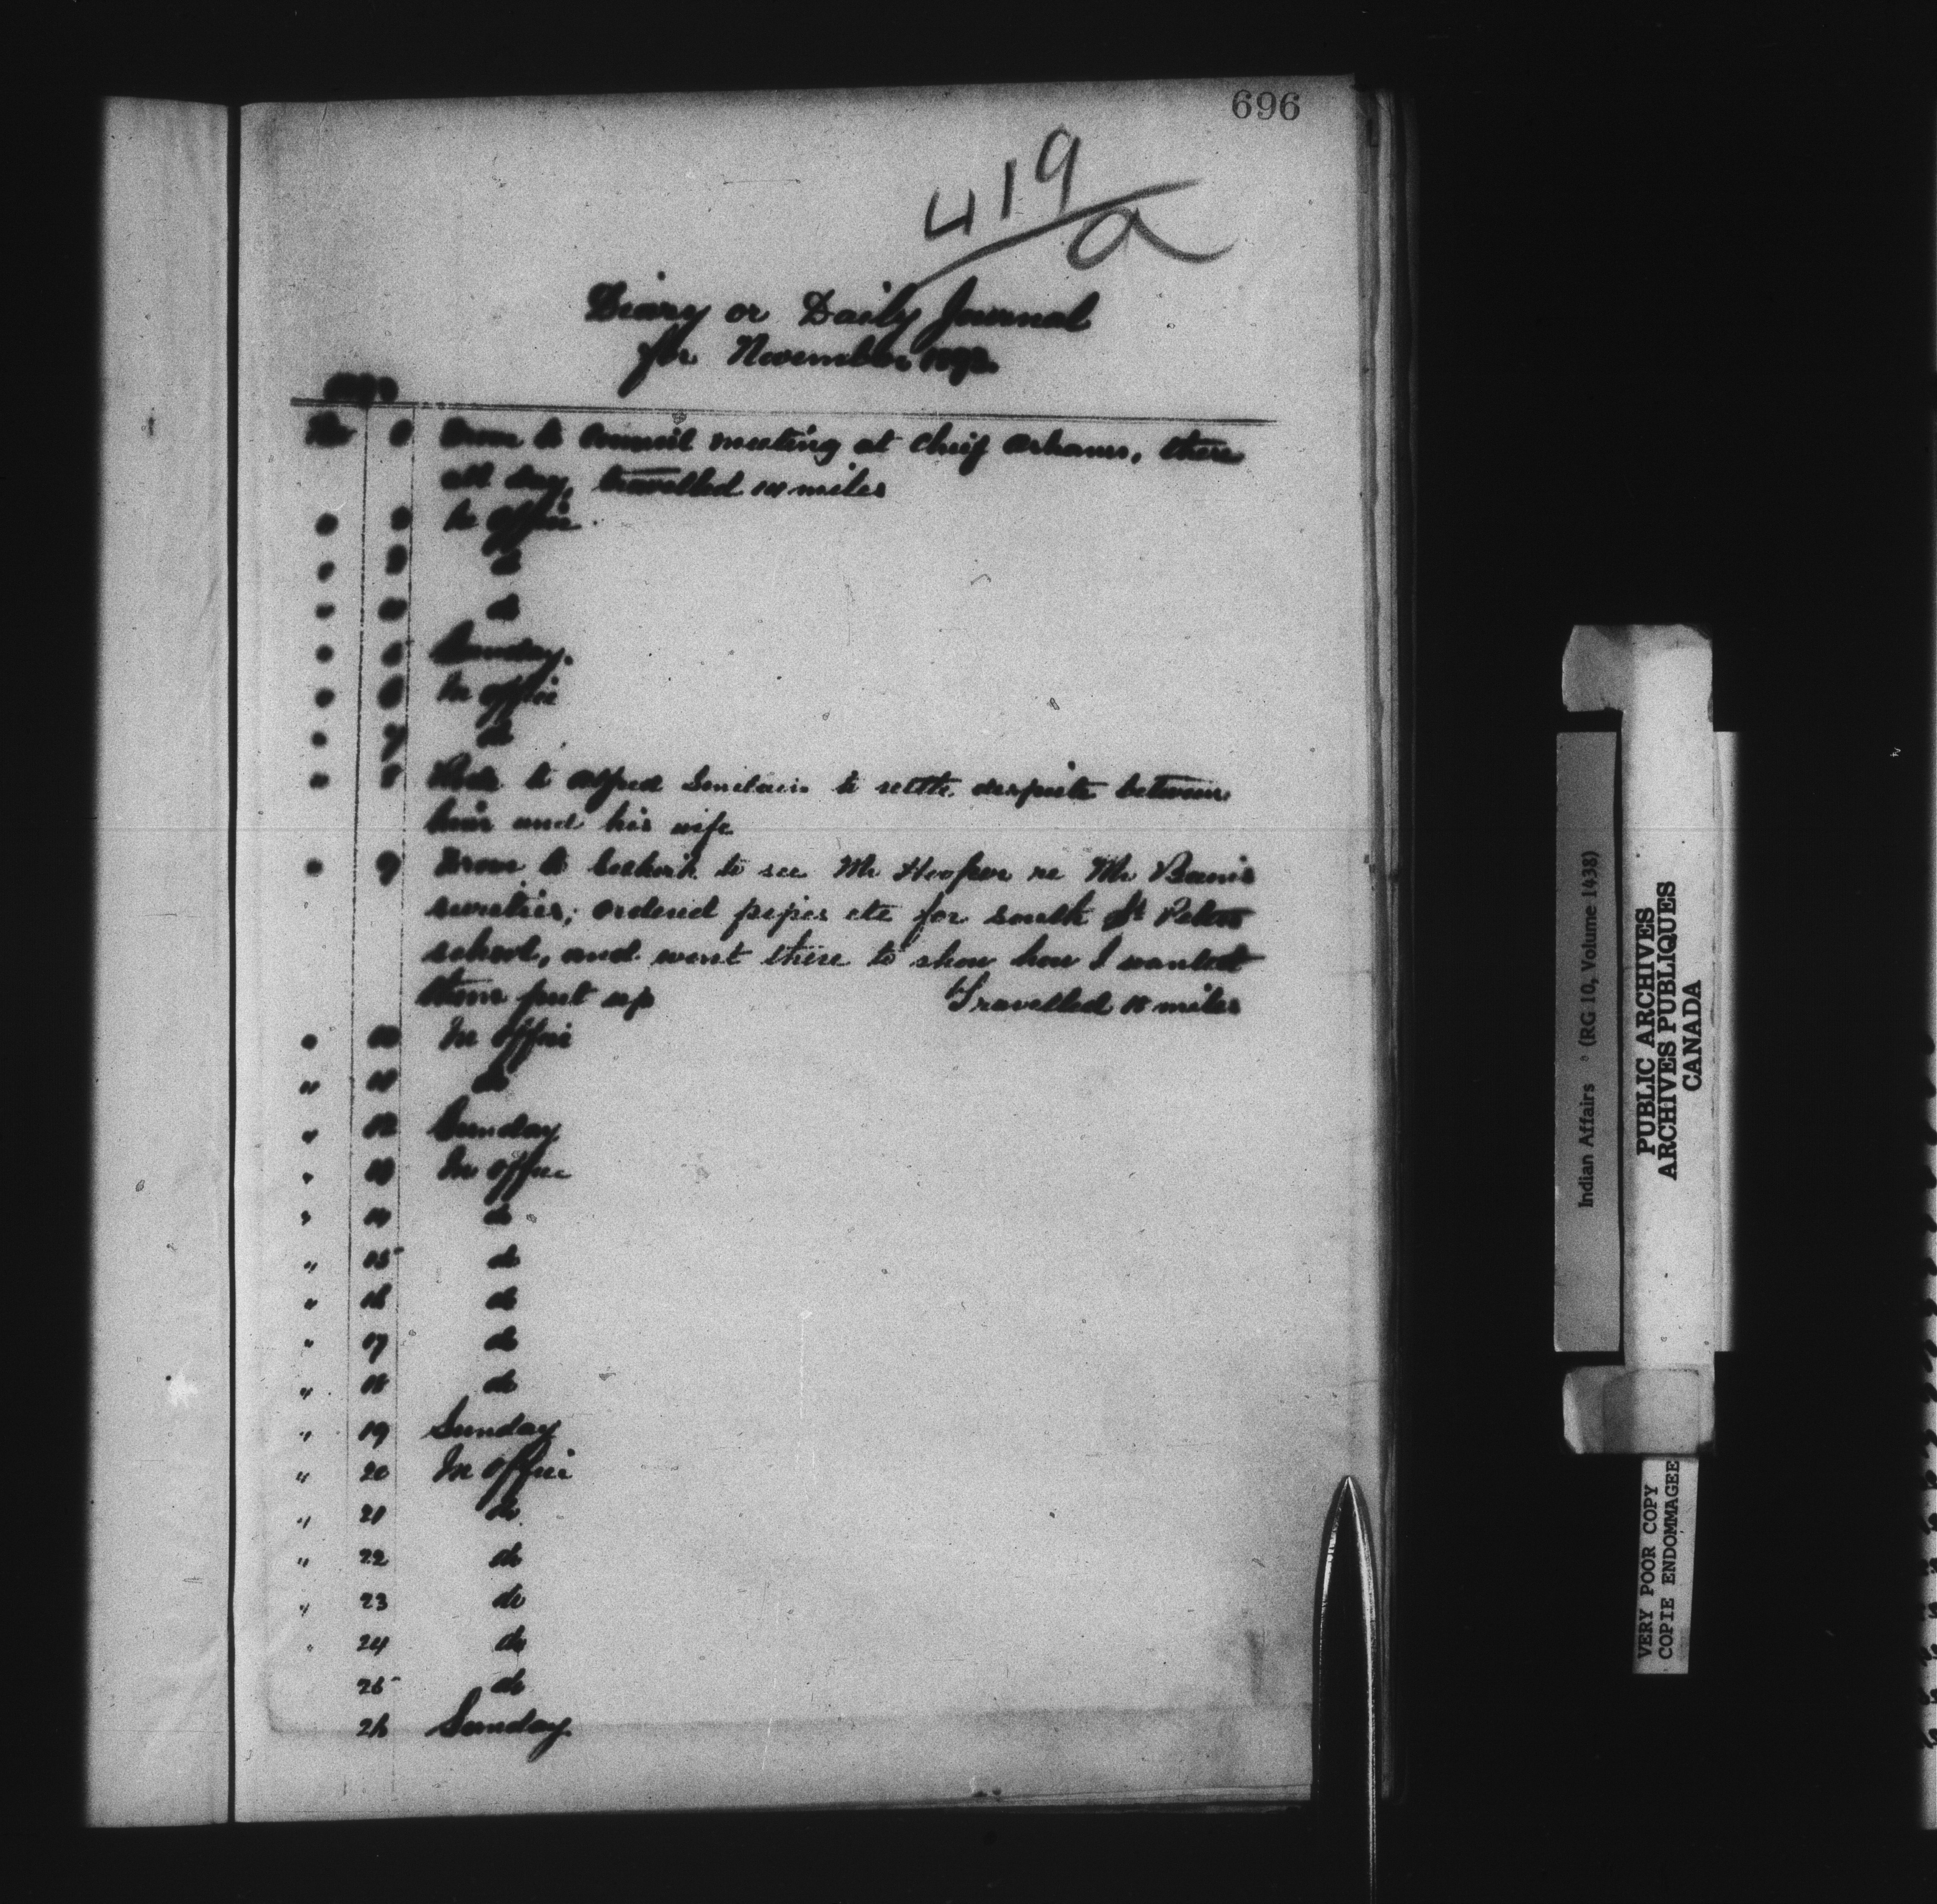 696
419/a
Diary or Daily Journal
for November
Nov Drove to Council meeting at Chief there
all day, travelled miles
" 2 In Office
" 3 do
" 4 do
" 5 Sunday.
" 6 In office
" 7 do
" 8 Rode to Alfred Sinclair to settle dispute between
him and his wife
" 9 Drove to Selkirk to see Mr Hooper re Mr
sureties; ordered pipes etc for South St Peters
school, and went there to show how I wanted
them put up Travelled miles
" 10 In Office
" 11 do
" 12 Sunday
" 13 In Office
" 14 do
" 15 do
" 16 do
" 17 do
" 18 do
" 19 Sunday
" 20 In Office
" 21 do
" 22 do
" 23 do
" 24 do
25 do
26 Sunday
Indian Affairs (RG 10, Volume 1438)
PUBLIC ARCHIVES
ARCHIVES PUBLIQUES
CANADA
VERY POOR COPY
COPIE ENDOMMAGEE